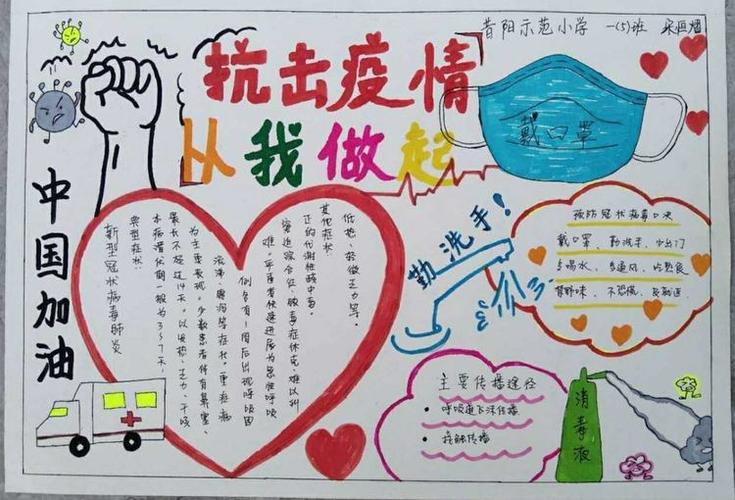 昔阳示范小学 一(5)班
抗击疫情
从我做起
戴口罩
中国加油
新型冠状病毒肺炎
典型症状:
本病潜伏期一般为3~7天,
最长不超过14天。以发热、乏力、干咳
为主要表现。少数患者伴有鼻塞、
流涕、腹泻等症状。重症病
例多有1周后出现呼吸困
难,严重者快速进展为急性呼吸
窘迫综合征、脓毒症休克、难以纠
正的代谢性酸中毒。
其他症状:
低热、轻微乏力等。
勤洗手!
预防冠状病毒口诀
戴口罩、勤洗手、少出门
多喝水、多通风、吃熟食
禁野味、不恐慌、
主要传播途径
呼吸道飞沫传播
接触传播
消毒液